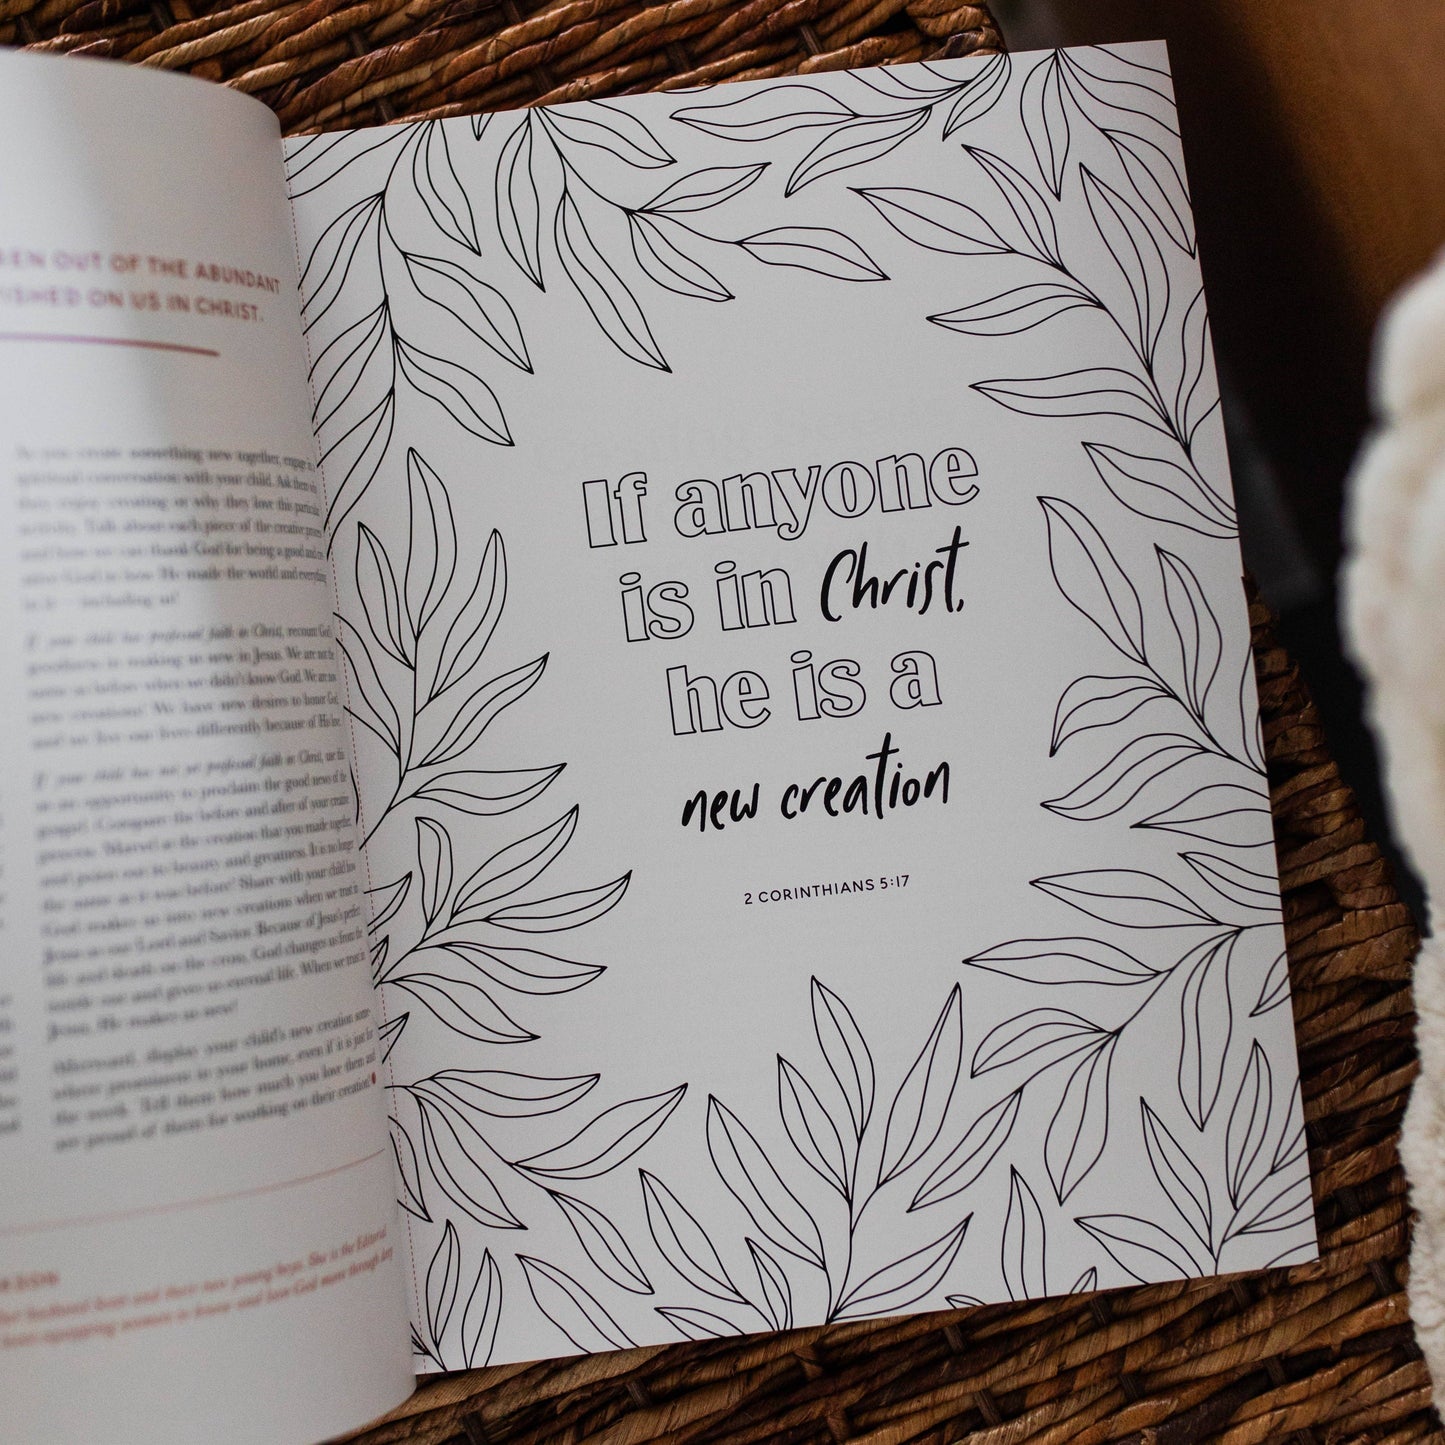 OUT OF THE ABUNDANT
ON US IN CHRIST.
As you create something new together, engage in
spiritual conversation with your child. Ask them why
they enjoy creating or why they love this particular
activity. Talk about each piece of the creative process
and how we can thank God for being a good and
God in how He made the world and everything
in it—including us!
If your child has professed faith in Christ, recount God's
goodness in making us new in Jesus. We are not the
same as before when we didn't know God. We are
new creations! We have new desires to honor God,
and we live our lives differently because of His love.
If your child has not yet professed faith in Christ, use this
as an opportunity to proclaim the good news of the
gospel. Compare the before and after of your
process. Marvel at the creation that you made together,
and point out its beauty and greatness. It is no longer
the same as it was before! Share with your child how
God makes us into new creations when we trust in
Jesus as our Lord and Savior. Because of Jesus's perfect
life and death on the cross, God changes us from the
inside out and gives us eternal life. When we trust in
Jesus, He makes us new!
Afterward, display your child's new creation some-
where prominent in your home, even if it is just for
the week. Tell them how much you love them and
are proud of them for working on their creation!
husband and their two young boys. She is the Editorial
women to know and love God more through
If anyone
is in Christ,
he is a
new creation
2 CORINTHIANS 5:17